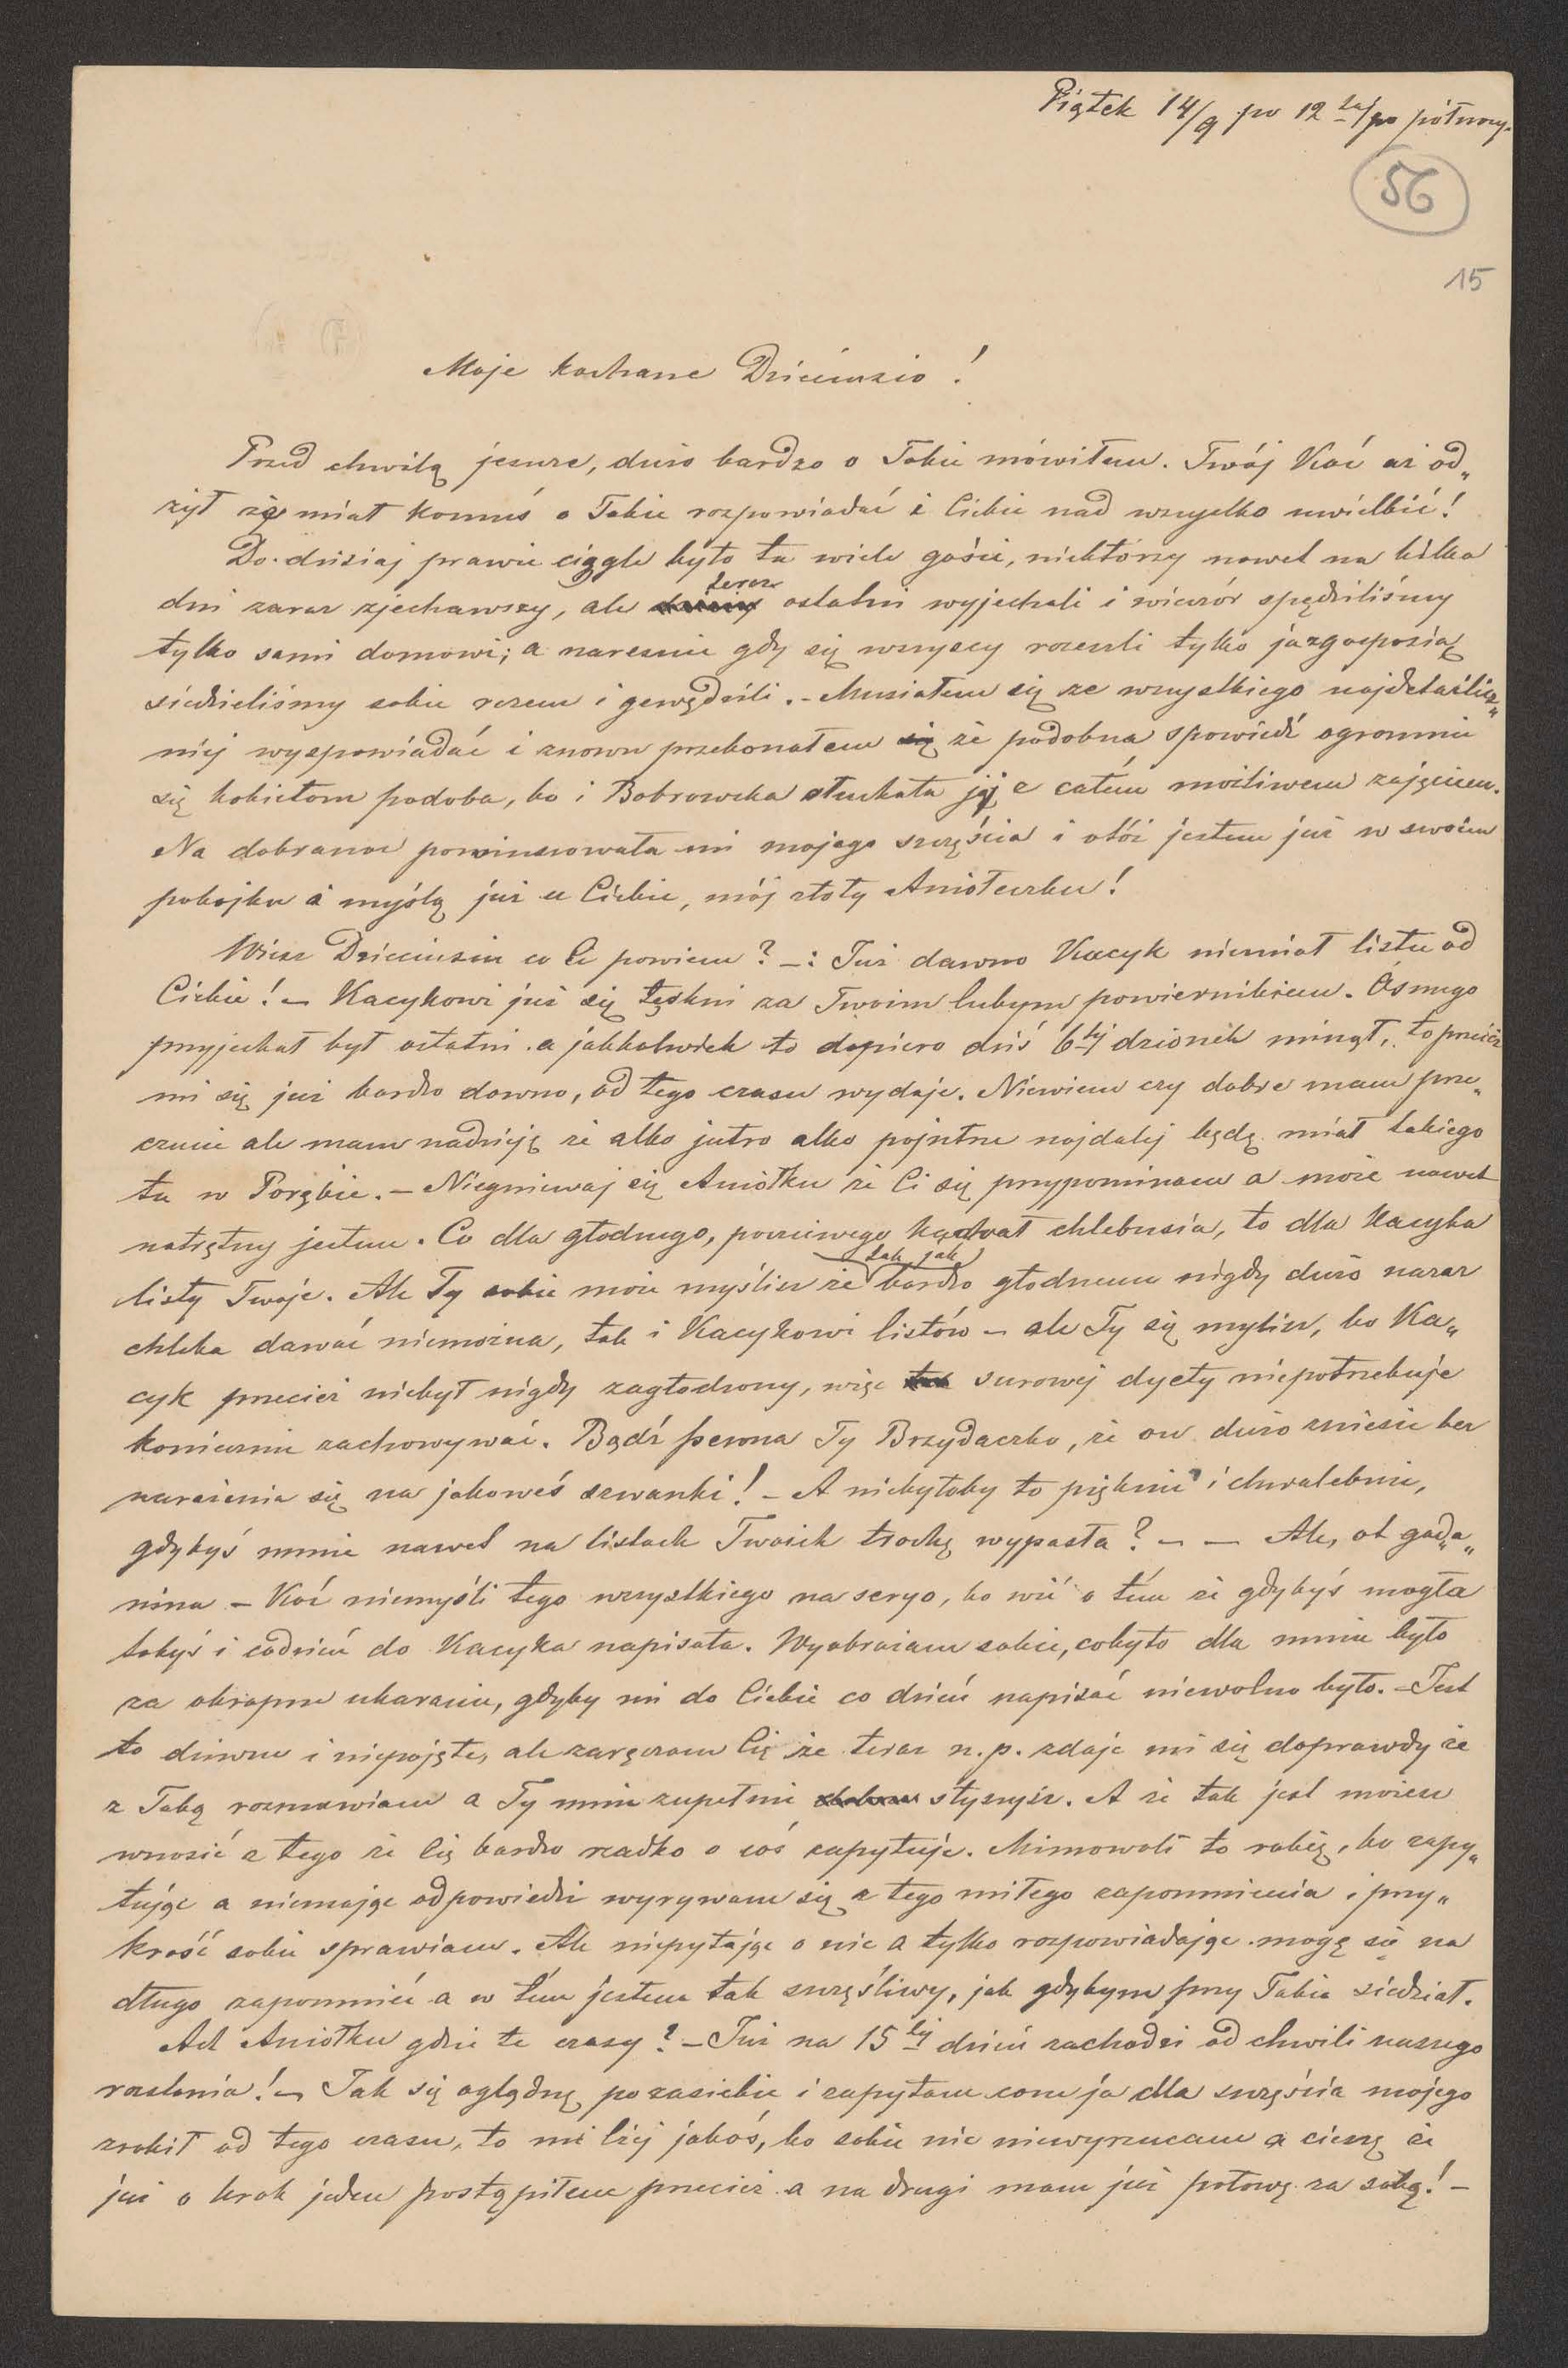 Piątek 14/9 po 12tej po północy.
56
15
Moje kochane Dzieciuszio!
Przed chwilą jeszcze, dużo bardzo o Tobie mówiłem. Twój Koć aż od„
żył że miał komuś o Tobie rozpowiadać i Ciebie nad wszystko uwielbić!
Do dzisiaj prawie ciągle było tu wiele gości, niektórzy nawet na kilka
dni zaraz zjechawszy, ale teraz ostatni wyjechali i wieczór spędziliśmy
tylko sami domowi; a nareszcie gdy się wszyscy rozeszli tylko ja z gosposią
siedzieliśmy sobie razem i gawędzili. - Musiałem się ze wszystkiego najdetailicz„
niej wyspowiadać i znowu przekonałem się że podobna spowiedź ogromnie
się kobietom podoba, bo i Bobrowska słuchała jej z całém możliwem zajęciem.
Na dobranoc powinszowała mi mojego szczęścia i otóż jestem już w swoim
pokojku i myślą już u Ciebie, mój złoty Aniołeczku!
Wiesz Dzieciusiu co Ci powiem? -: Już dawno Kacyk niemiał listu od
Ciebie! - Kacykowi już się tęskni za Twoim lubym powiernikiem. Ósmego
przyjechał był ostatni a jakkolwiek to dopiero dziś 6ty dzionek minął, to przecież
mi się już bardzo dawno, od tego czasu wydaje. Niewiem czy dobre mam prze„
czucie ale mam nadzieję że albo jutro albo pojutrze najdalej będę miał takiego
tu w Porębie. - Niegniewaj się Aniołku że Ci się przypominam a może nawet
natrętny jestem. Co dla głodnego, poczciwego kawał chlebusia, to dla Kacyka
listy Twoje. Ale Ty sobie może myślisz że tak jak bardzo głodnemu nigdy dużo naraz
chleba dawać niemożna, tak i Kacykowi listów - ale Ty się mylisz, bo Ka„
cyk przecież niebył nigdy zagłodzony, więc surowej dyety niepotrzebuje
koniecznie zachowywać. Bądź pewna Ty Brzydaczko, że on dużo zniesie bez
narażenia się na jakoweś szwanki! - A niebyłoby to pięknie i chwalebnie,
gdybyś mnie nawet na listach Twoich trochę wypasła? - - Ale, ot gada„
nina - Koć niemyśli tego wszystkiego na seryo, bo wié o tém że gdybyś mogła
tobyś i codzień do Kacyka napisała. Wyobrażam sobie, coby to dla mnie było
za okropne ukaranie, gdyby mi do Ciebie co dzień napisać niewolno było. - Jest
to dziwne i niepojęte, ale zaręczam Cię że teraz n.p. zdaje mi się doprawdy że
z Tobą rozmawiam a Ty mnie zupełnie słyszysz. A że tak jest możesz
wnosić z tego że Cię bardzo rzadko o coś zapytuję. Mimowoli to robię, bo zapy„
tując a niemając odpowiedzi wyrywam się z tego miłego zapomnienia i przy„
krość sobie sprawiam. Ale niepytając o nic a tylko rozpowiadając mogę się na
długo zapomnieć a w tém jestem tak szczęśliwy, jak gdybym przy Tobie siedział.
Ach Aniołku gdzie te czasy? - Już na 15ty dzień zachodzi od chwili naszego
rozstania! - Tak się oglądnę poza siebie i zapytam com ja dla szczęścia mojego
zrobił od tego czasu, to mi lżej jakoś, bo sobie nic niewyrzucam a cieszę że
już o krok jeden postąpiłem przecież a na drugi mam już połowę za sobą! -